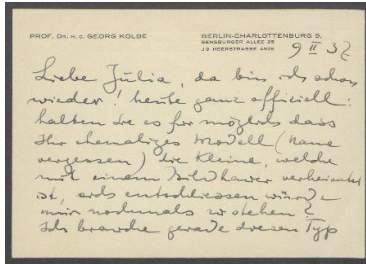 PROF. DR. H. C. GEORG KOLBE
BERLIN-CHARLOTTENBURG 9.
SENSBURGER ALLEE 25
J 9 HEERSTRASSE
9 II 32
Liebe Julia, da bin ich schon
wieder! heute ganz officiell:
halten Sie es für möglich dass
Ihr ehemaliges Modell (Name
vergessen) die Kleine, welche
mit einem Bildhauer verheiratet
ist, sich entschliessen würde
mir nochmals zu stehen?
Ich brauche gerade diesen Typ